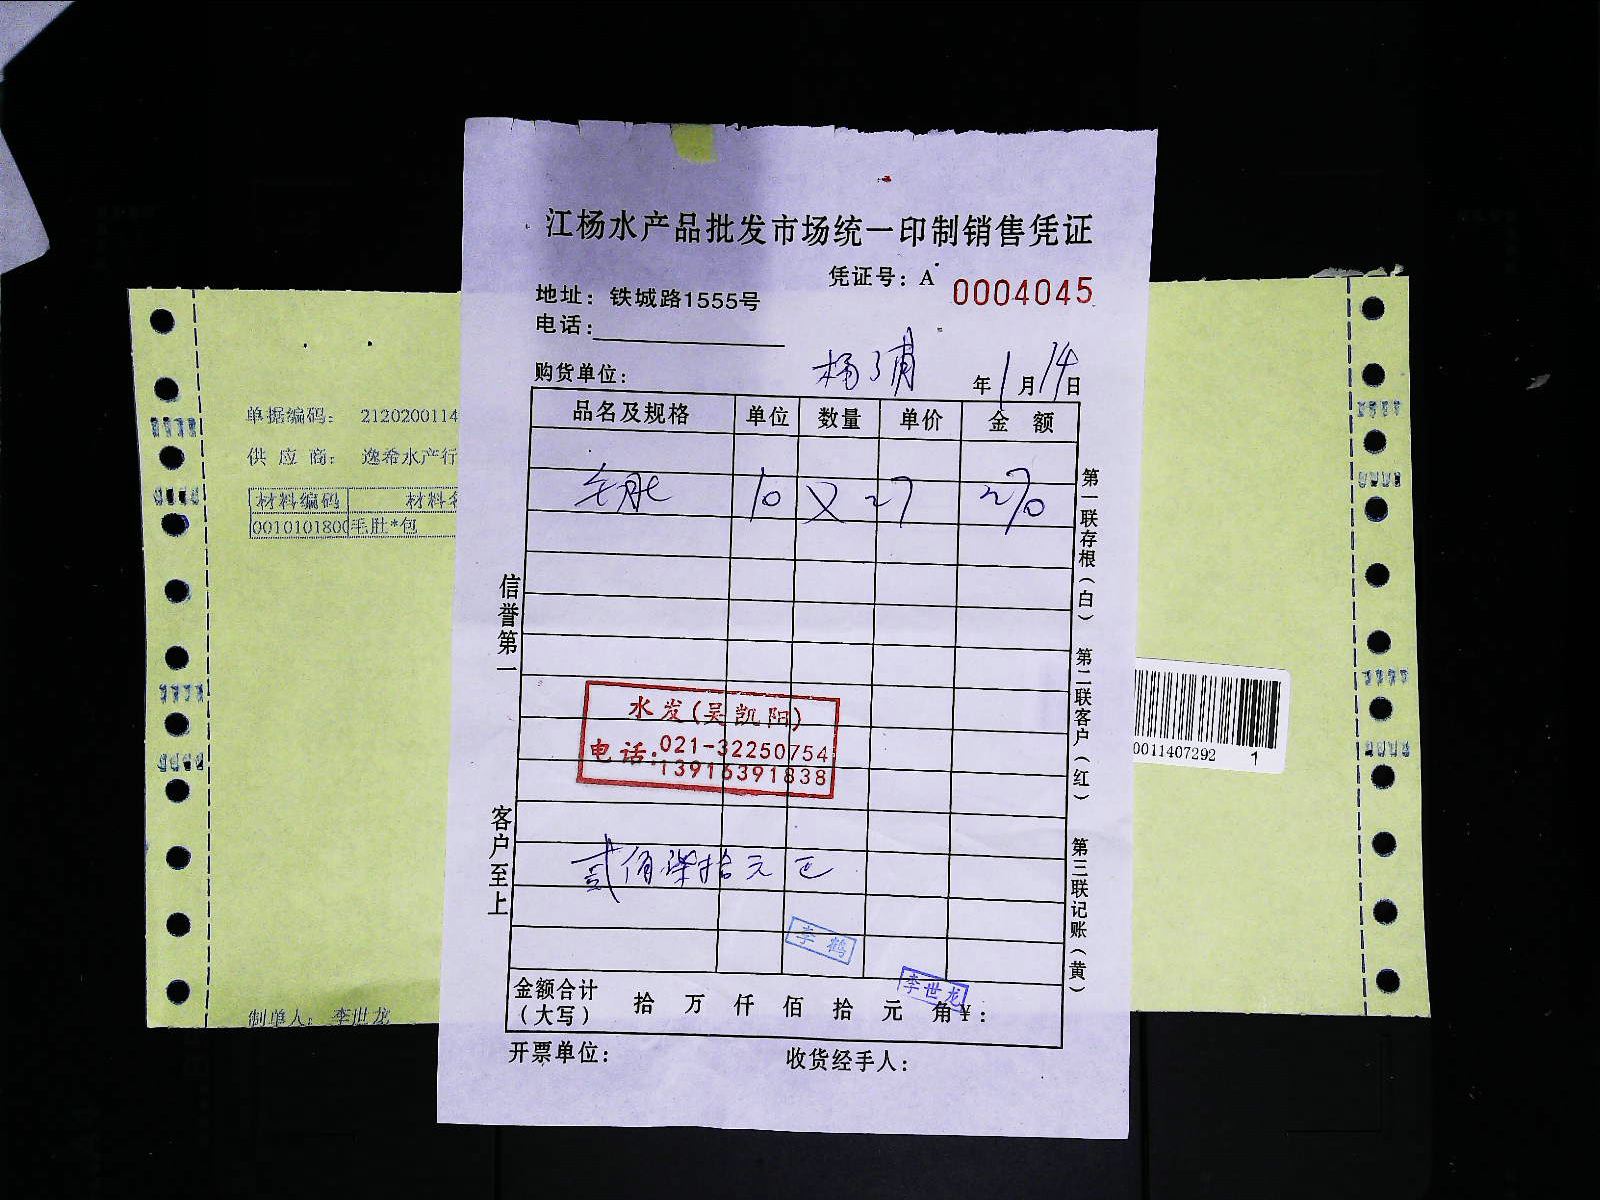 江杨水产品批发市场统一印制销售凭证
凭证号：A 0004045
地址：铁城路1555号
电话：
购货单位：
杨浦 年1月14日
品名及规格 单位 数量 单价 金额
毛肚 10 × 27 270
水发(吴凯阳)
电话:021-32250754
13916391838
贰佰柒拾元正
李鹤
李世龙
金额合计
（大写）
拾 万 仟 佰 拾 元 角 ¥：
开票单位： 收货经手人：
信誉第一
客户至上
第一联存根（白）
第二联客户（红）
第三联记账（黄）
单据编码： 2120200114
供应商： 逸希水产行
材料编码 材料名
0010101800 毛肚*包
制单人： 李世龙
0011407292 1